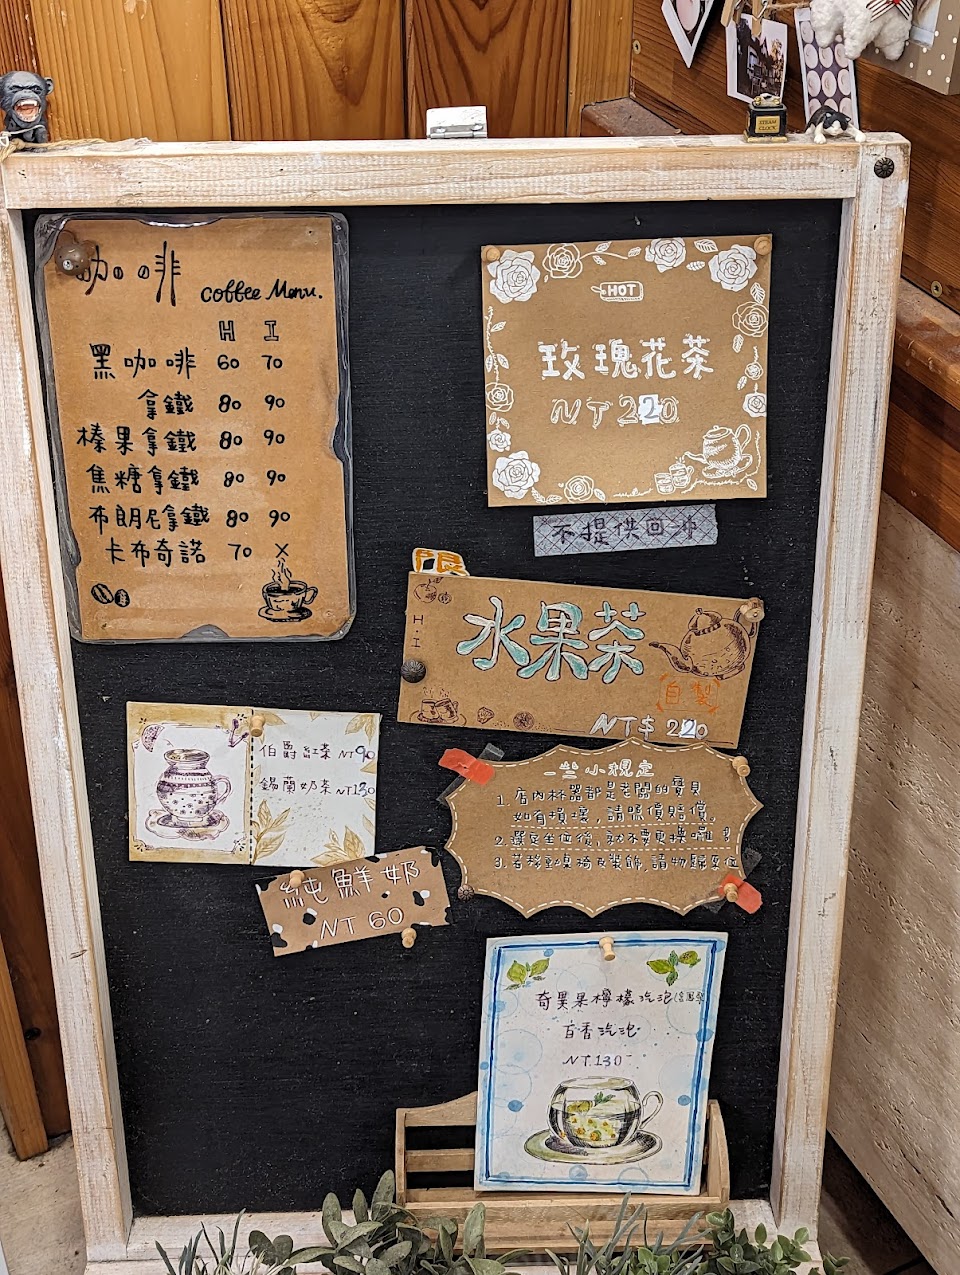 咖啡
coffee Menu.
H I
黑咖啡 60 70
拿鐵 80 90
榛果拿鐵 80 90
焦糖拿鐵 80 90
布朗尼拿鐵 80 90
卡布奇諾 70 X
HOT
玫瑰花茶
NT 220
不提供回沖
限
H.I
水果茶
自製
NT$ 220
伯爵紅茶 NT90
錫蘭奶茶 NT130
純鮮奶
NT 60
一些小規定
1. 店內杯器都是老闆的寶貝
如有損壞,請照價賠償。
2. 選定坐位後,就不要更換囉!
3. 若移動桌椅及裝飾,請物歸原位
奇異果檸檬汽泡
百香汽泡
NT.130
STEAM
CLOCK